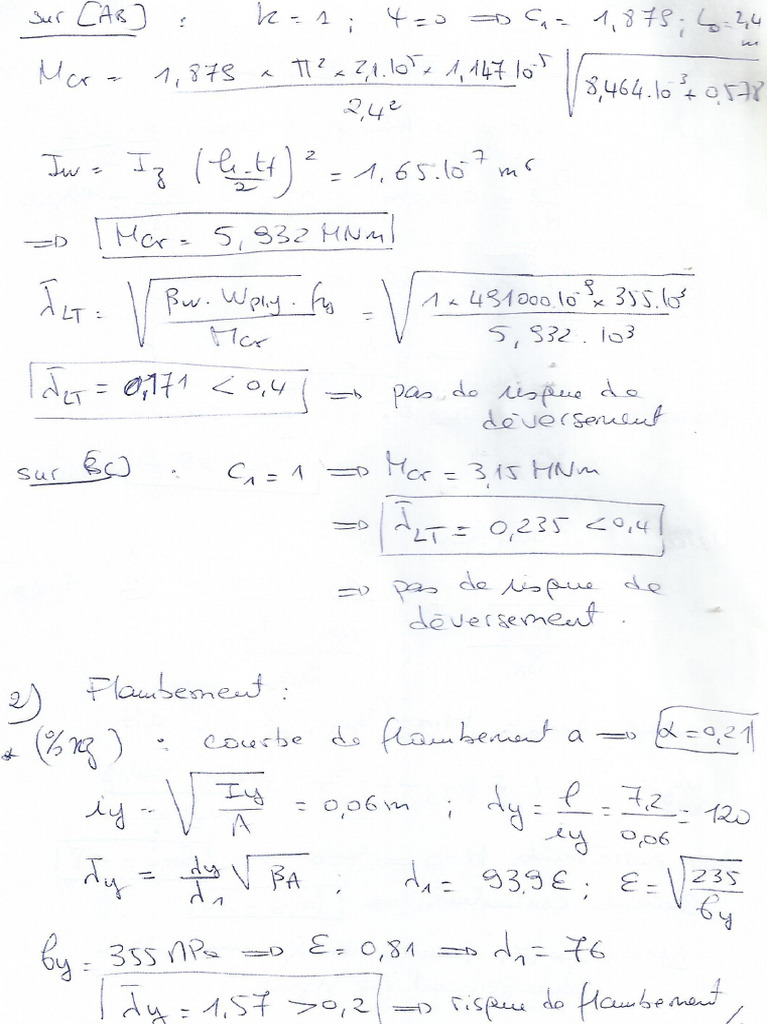 sur [AB] : k = 1 ; ψ = 0 ⇒ C₁ = 1,879 ; L₀ = 2,4 m
Mcr = (1,879 × π² × 2,1.10⁵ × 1,147 10⁻⁵) / 2,4² √(8,464.10⁻³ + 0,578
Iw = Iz ((h - tf)/2)² = 1,65.10⁻⁷ m⁶
⇒ Mcr = 5,932 MNm
λ̄LT = √(βw . Wpl.y . fy / Mcr) = √(1 × 491000.10⁻⁹ × 355.10³ / 5,932 . 10³)
λ̄LT = 0,171 < 0,4 ⇒ pas de risque de
déversement
sur [BC] : C₁ = 1 ⇒ Mcr = 3,15 MNm
⇒ λ̄LT = 0,235 < 0,4
⇒ pas de risque de
déversement .
2) Flambement :
* (% xz) : courbe de flambement a ⇒ α = 0,21
iy = √(Iy / A) = 0,06 m ; λy = l / iy = 7,2 / 0,06 = 120
λ̄y = λy / λ₁ √βA ; λ₁ = 93,9 ε ; ε = √(235 / fy)
fy = 355 MPa ⇒ ε = 0,81 ⇒ λ₁ = 76
λ̄y = 1,57 > 0,2 ⇒ risque de flambement